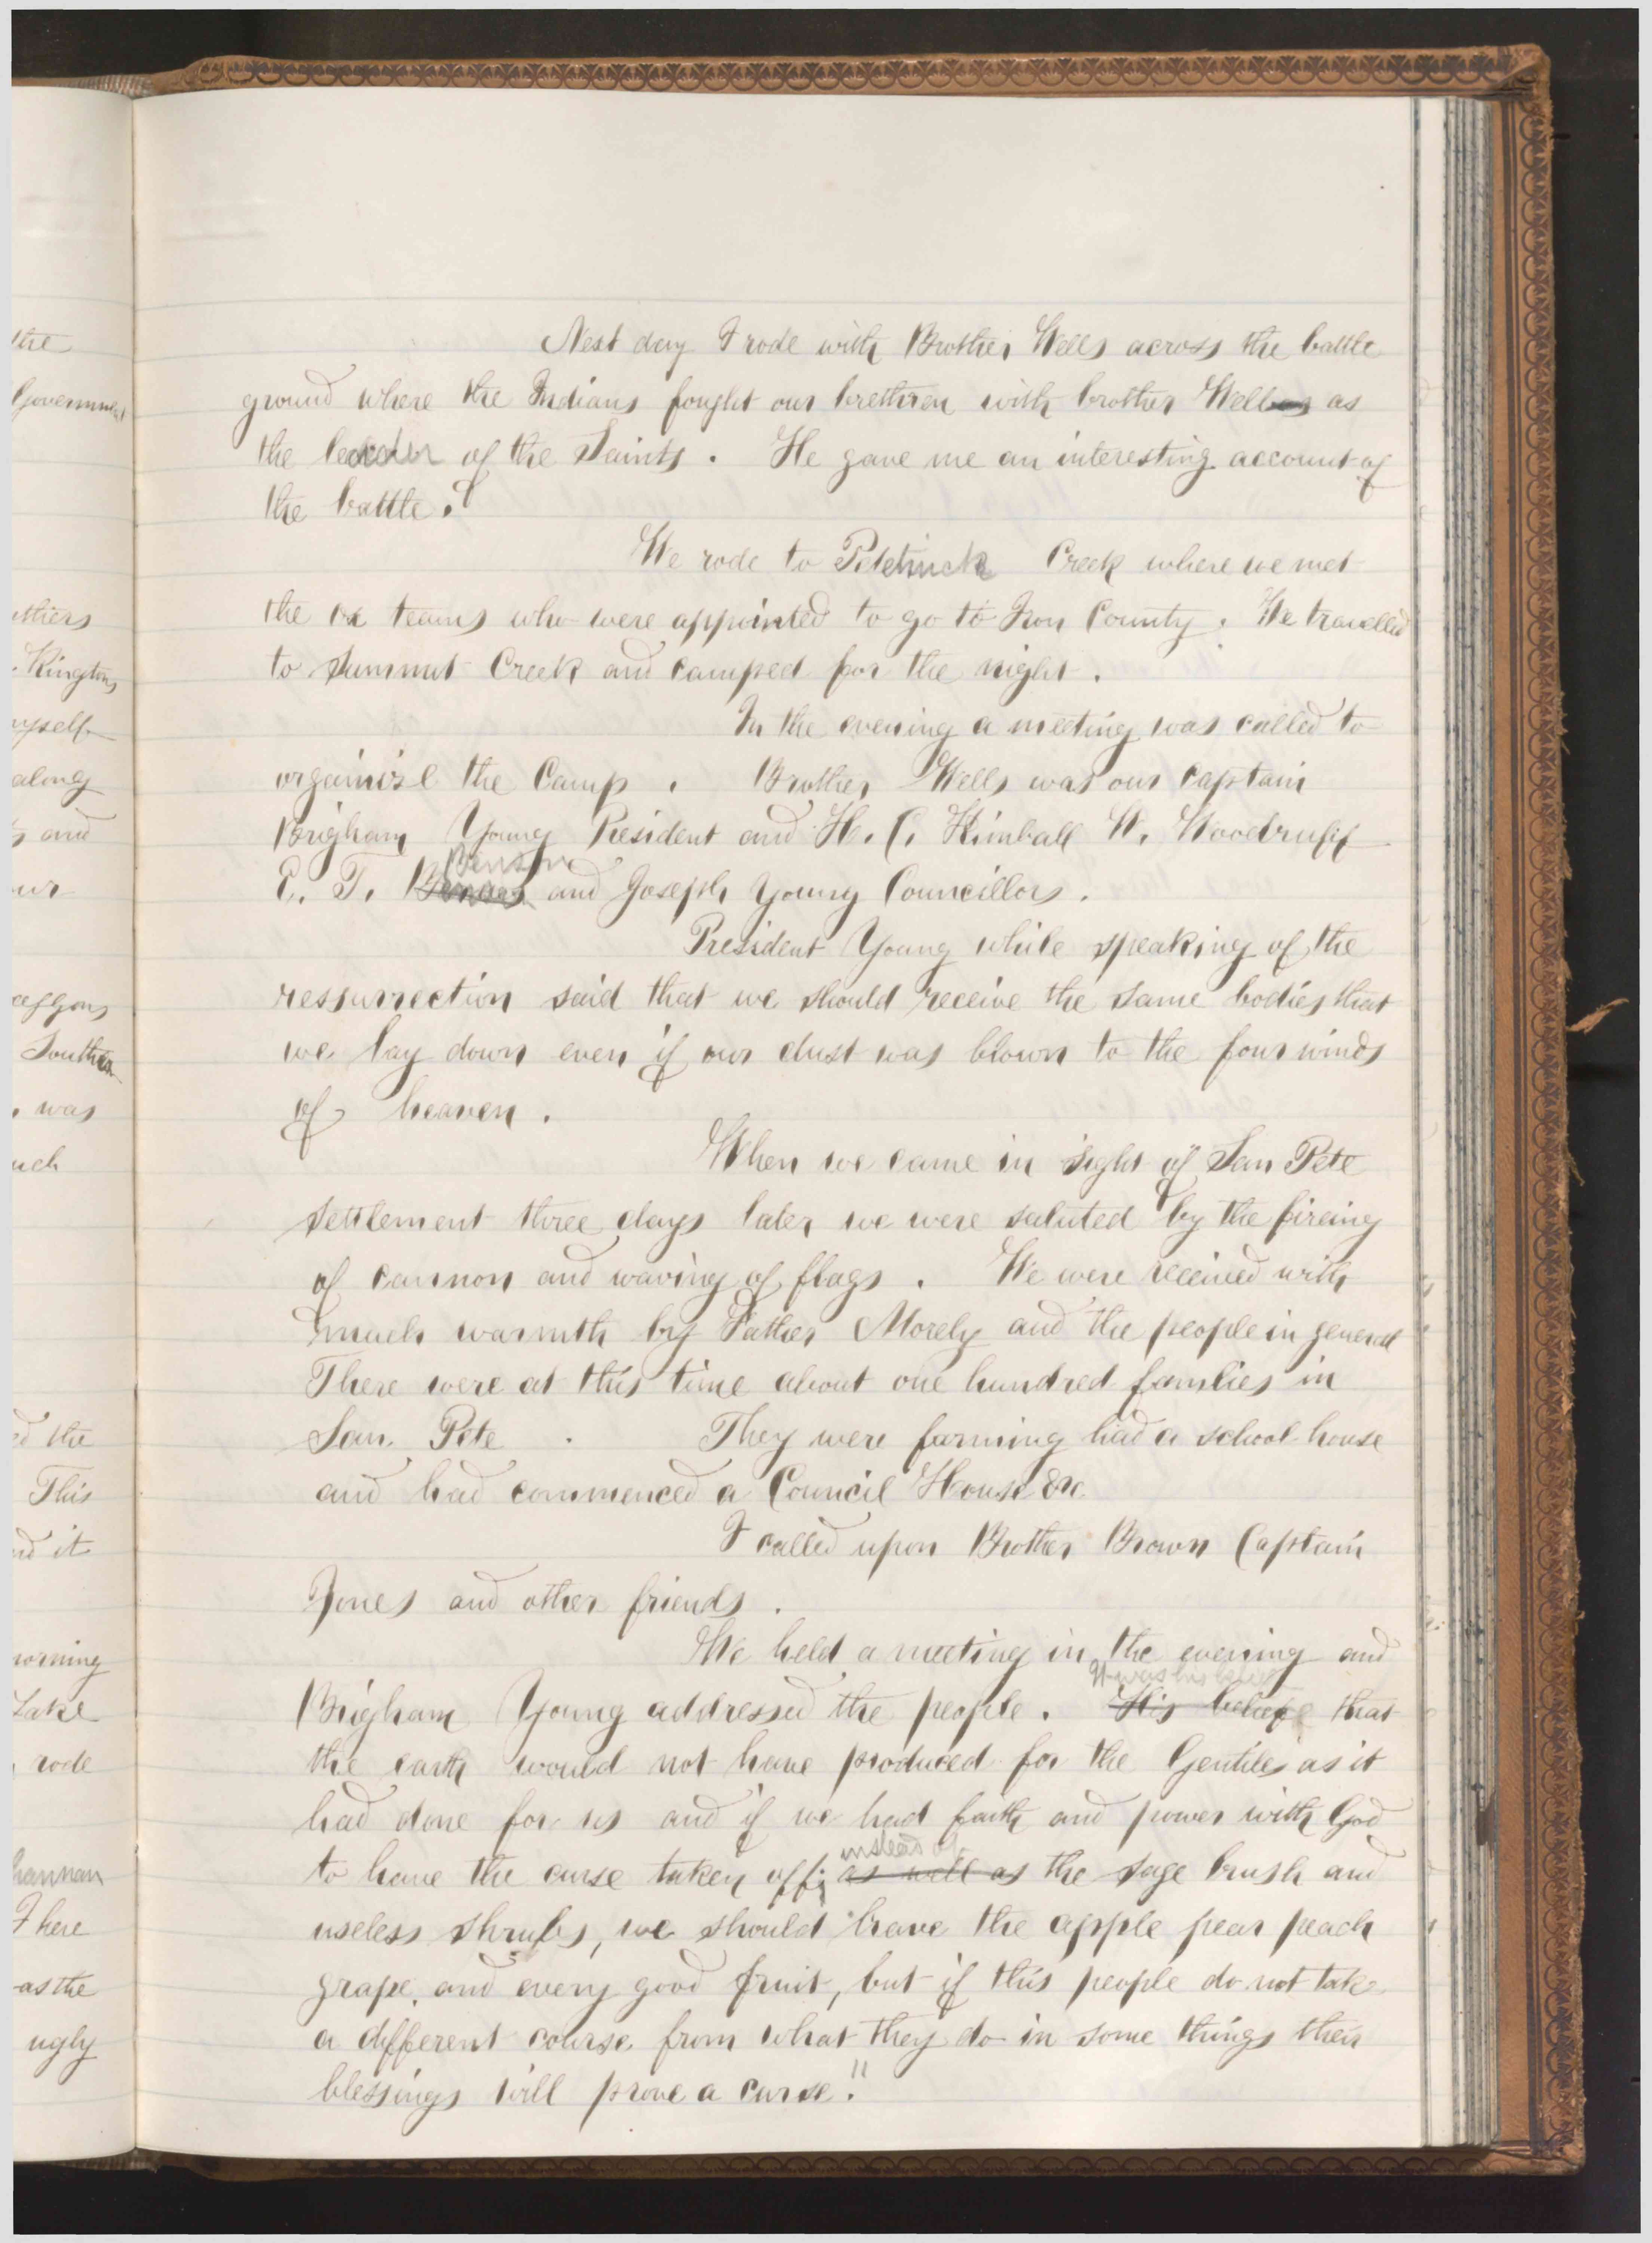 the
Government
others
Kington
myself
along
and
our
Southern
was
such
ed the
This
and it
morning
Lake
rode
There
as the
ugly
Next day I rode with Brother Wells across the battle
ground where the Indians fought our brethren with brother Wells as
the leader of the Saints. He gave me an interesting account of
the battle.
We rode to Petetnuck Creek where we met
the ox teams who were appointed to go to Iron County. We travelled
to Summit Creek and camped for the night.
In the evening a meeting was called to
organize the Camp. Brother Wells was our Captain
Brigham Young President and H. C. Kimball W. Woodruff
Benson
E. T. and Joseph Young Councillors.
President Young while speaking of the
ressurrection said that we should receive the same bodies that
we lay down even if our dust was blown to the four winds
of heaven.
When we came in sight of San Pete
settlement three days later we were saluted by the fireing
of cannon and waving of flags. We were received with
much warmth by Father Morely and the people in general
There were at this time about one hundred families in
San Pete. They were farming had a school house
and had commenced a Council House &c.
I called upon Brother Brown Captain
Jones and other friends.
We held a meeting in the evening and
It was his belief
Brigham Young addressed the people. His beliefe that
the earth would not have produced for the Gentiles as it
had done for us and if we had faith and power with God
instead of
to have the curse taken off; as well as the sage brush and
useless shrubs, we should have the apple pear peach
grape, and every good fruit, but if this people do not take
a different course from what they do in some things their
blessings will prove a curse."